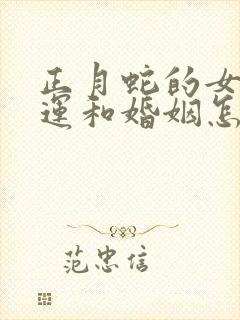 正月蛇的女
运和婚姻怎
范忠信